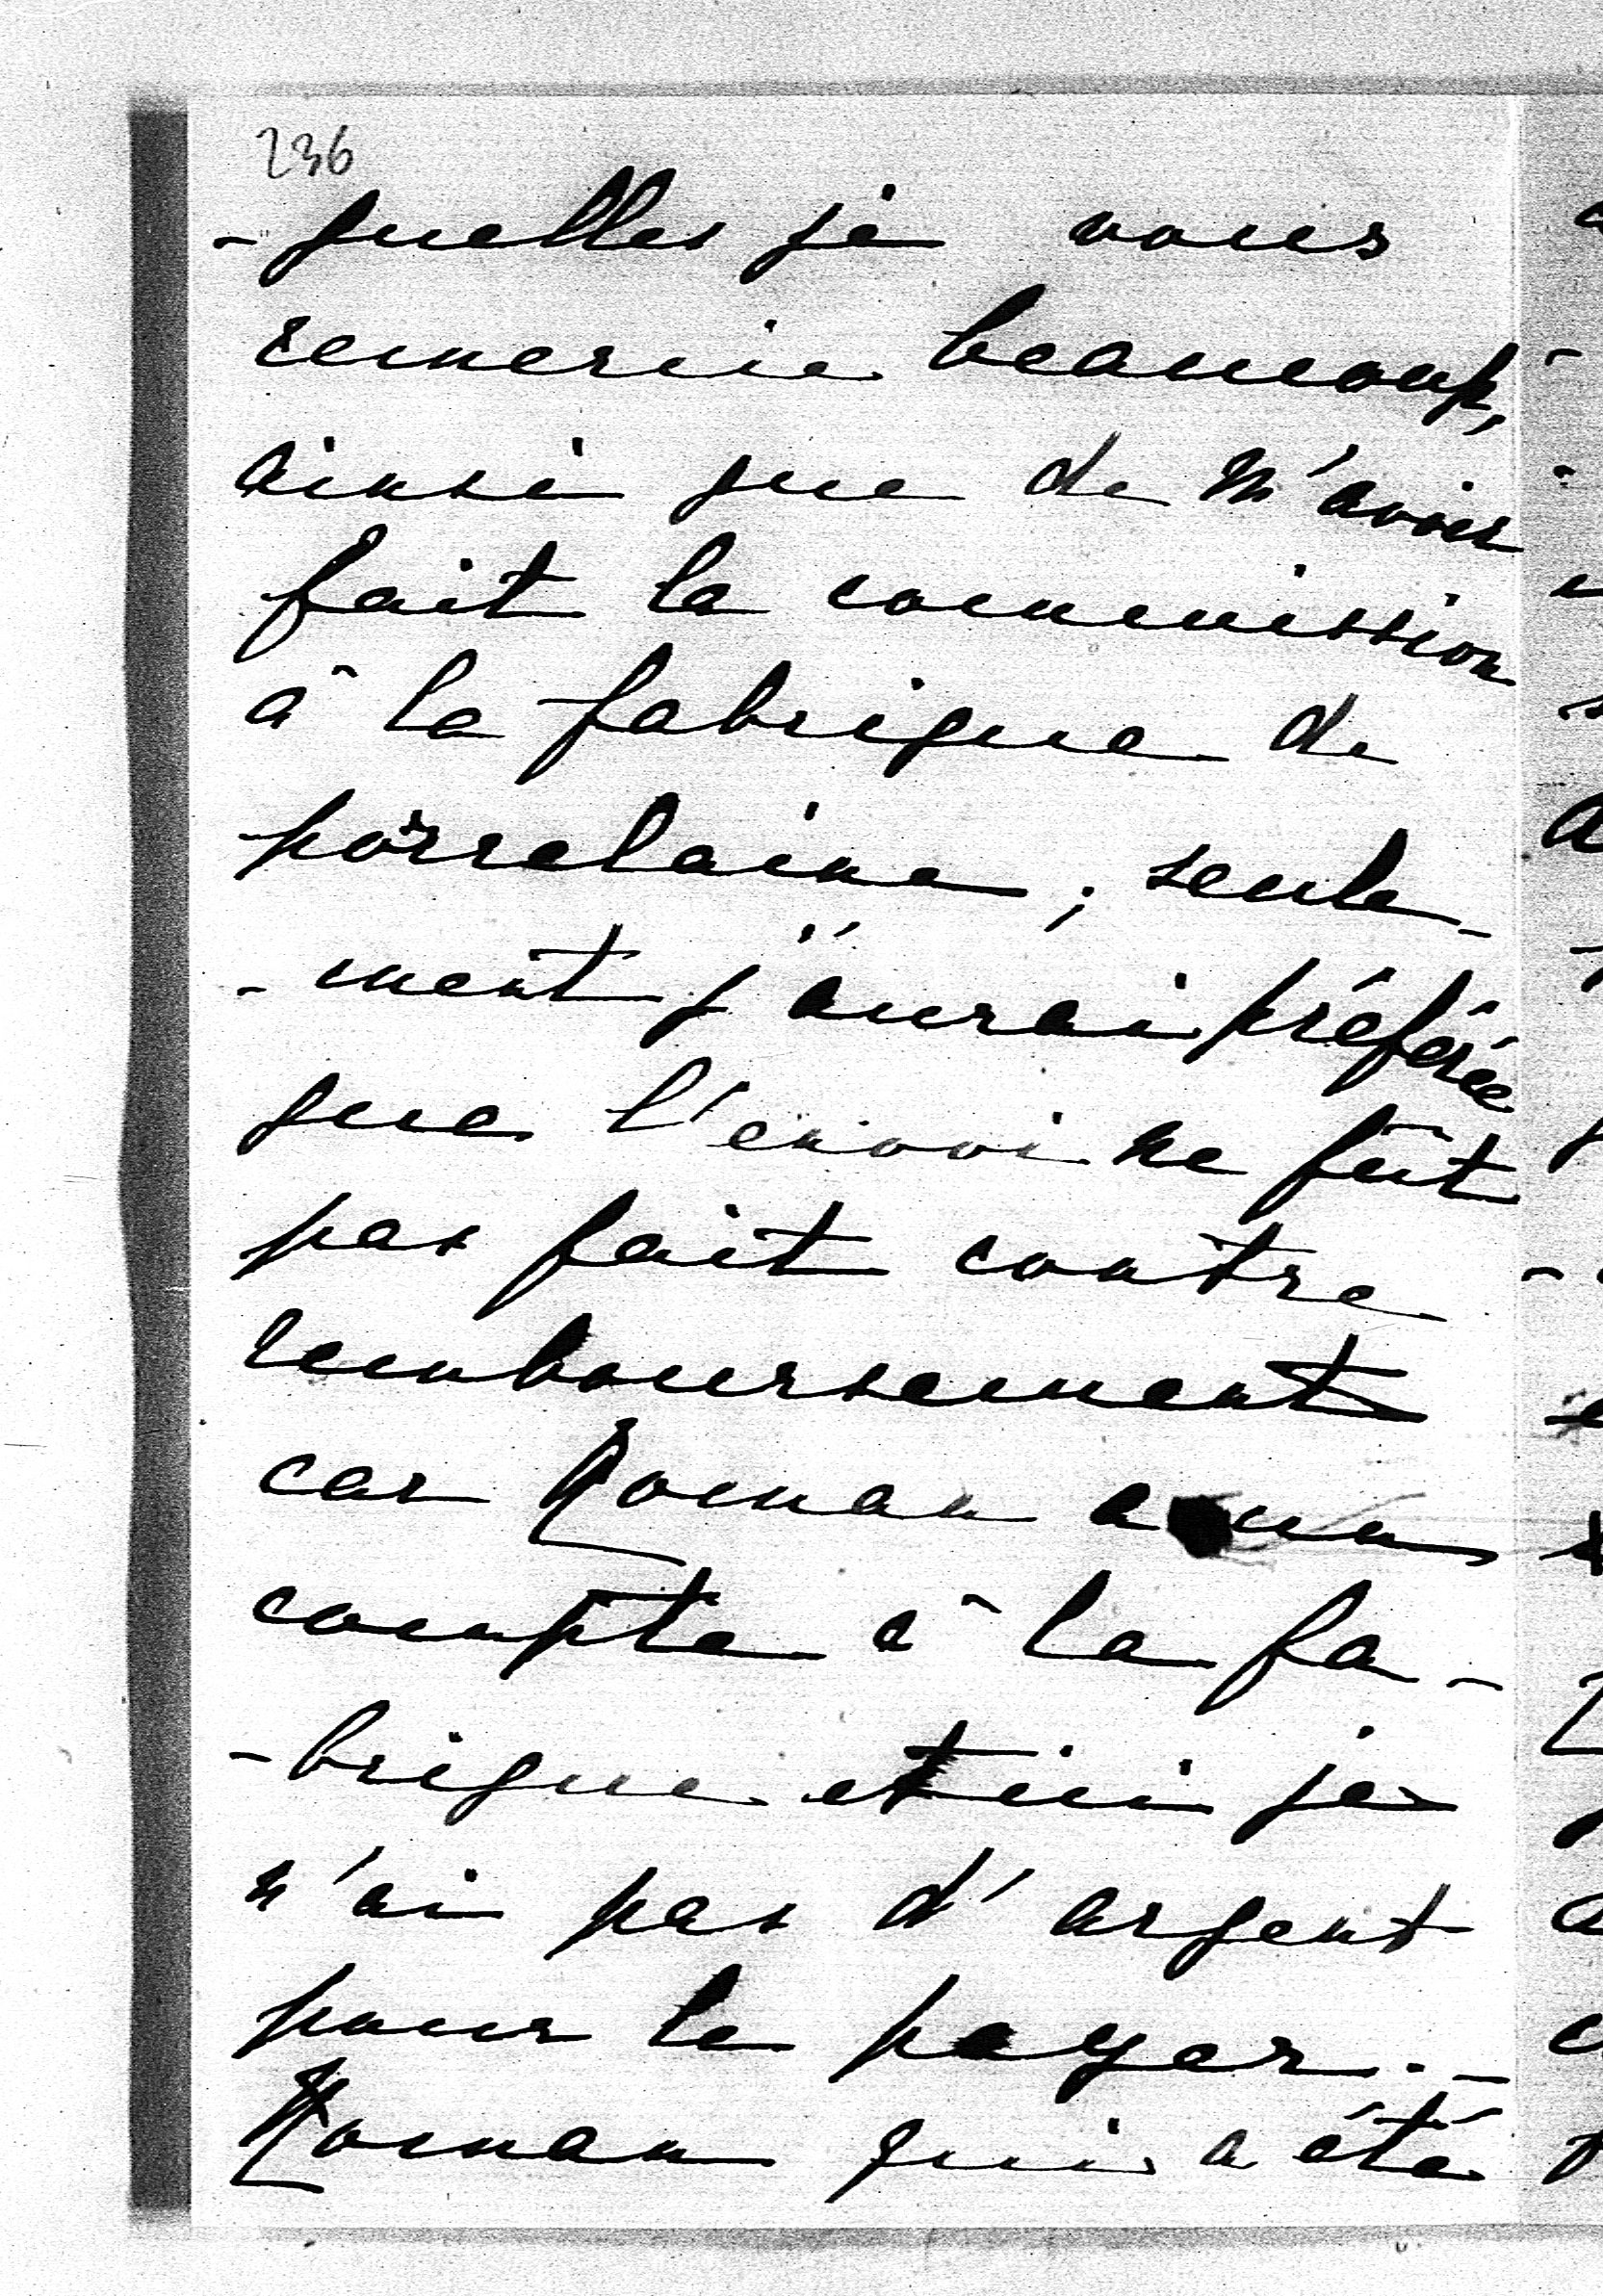 236
-quelles je vous
remercie beaucoup,
ainsi que de m'avoir
fait la commission
à la fabrique de
porcelaine; seule-
-ment j'aurai préférée
que l'envoi ne fût
pas fait contre
remboursement
car Roman a un
compte à la fa-
-brique et ici je
n'ai pas d'argent
pour le payer. -
Roman qui a été